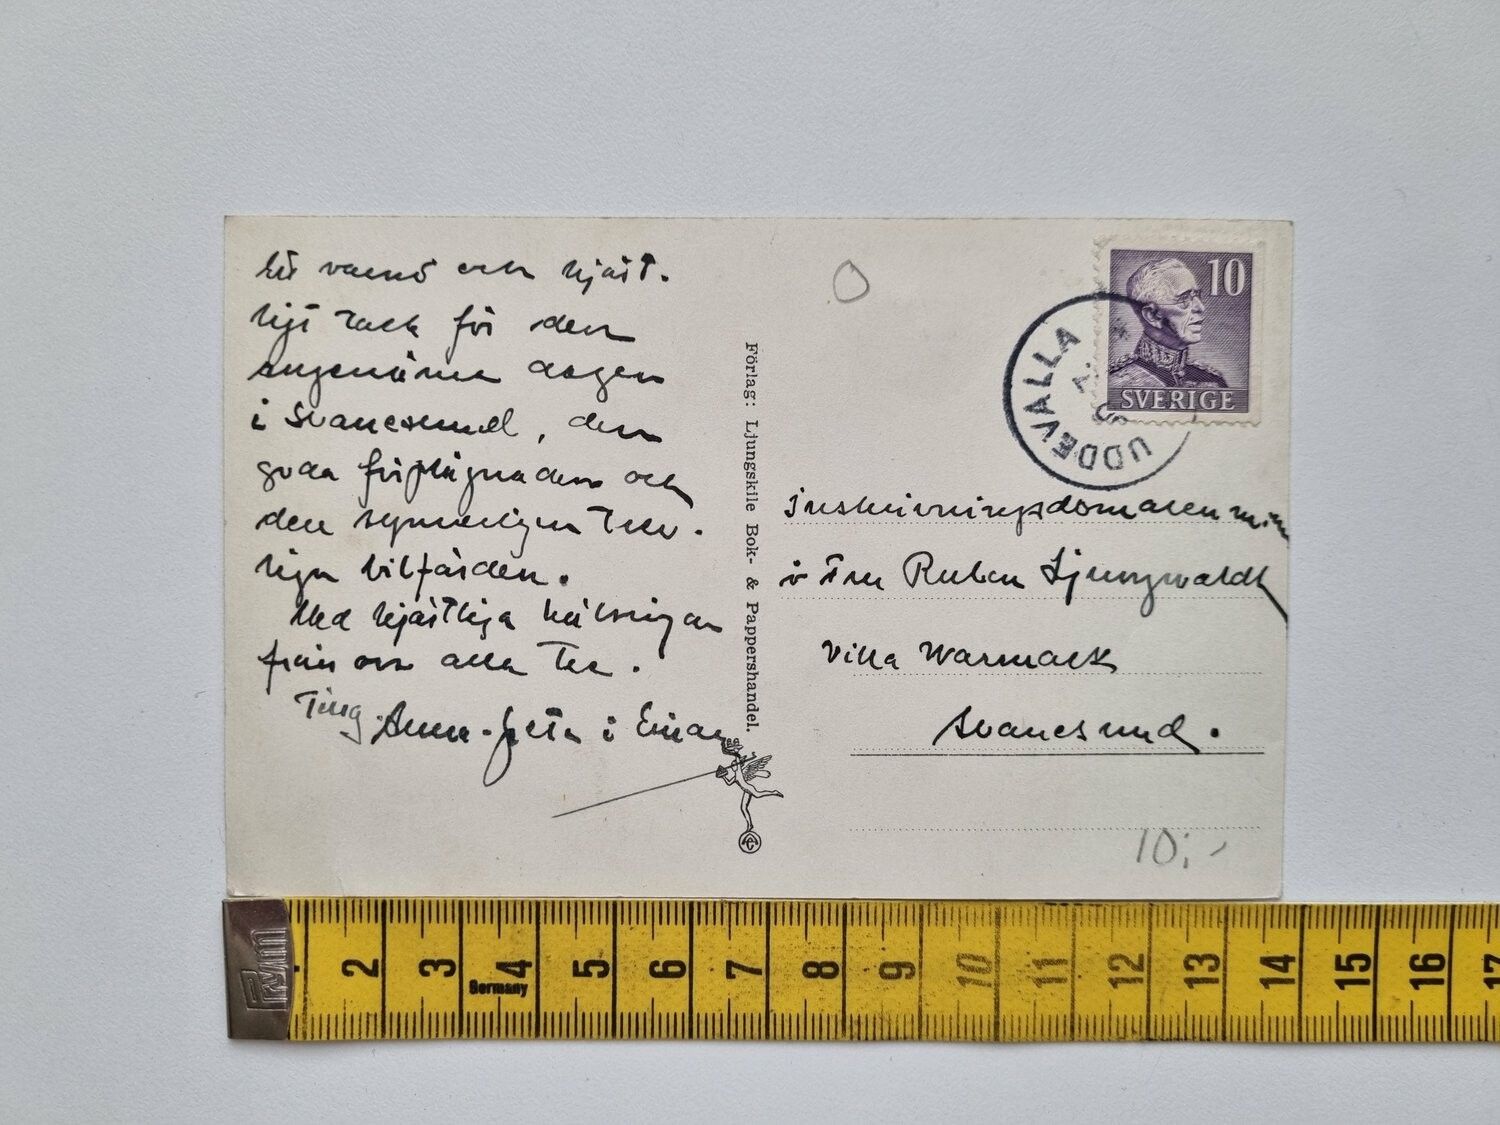 Ett varmt och hjärt-
ligt tack för den
angenäma dagen
i Svanesund, den
goda förplägnaden och
den synnerligen trev-
liga bilfärden.
Med hjärtliga hälsningar
från oss alla tre.
Ting Anna-Greta i Einar
Förlag: Ljungskile Bok- & Pappershandel.
10
SVERIGE
UDDEVALLA
Inskrivningsdomaren
o Fru Ruben Ljungwaldh
Villa Warmark
Svanesund.
10:-
Prym
2 3 4 5 6 7 8 9 10 11 12 13 14 15 16 17
Germany